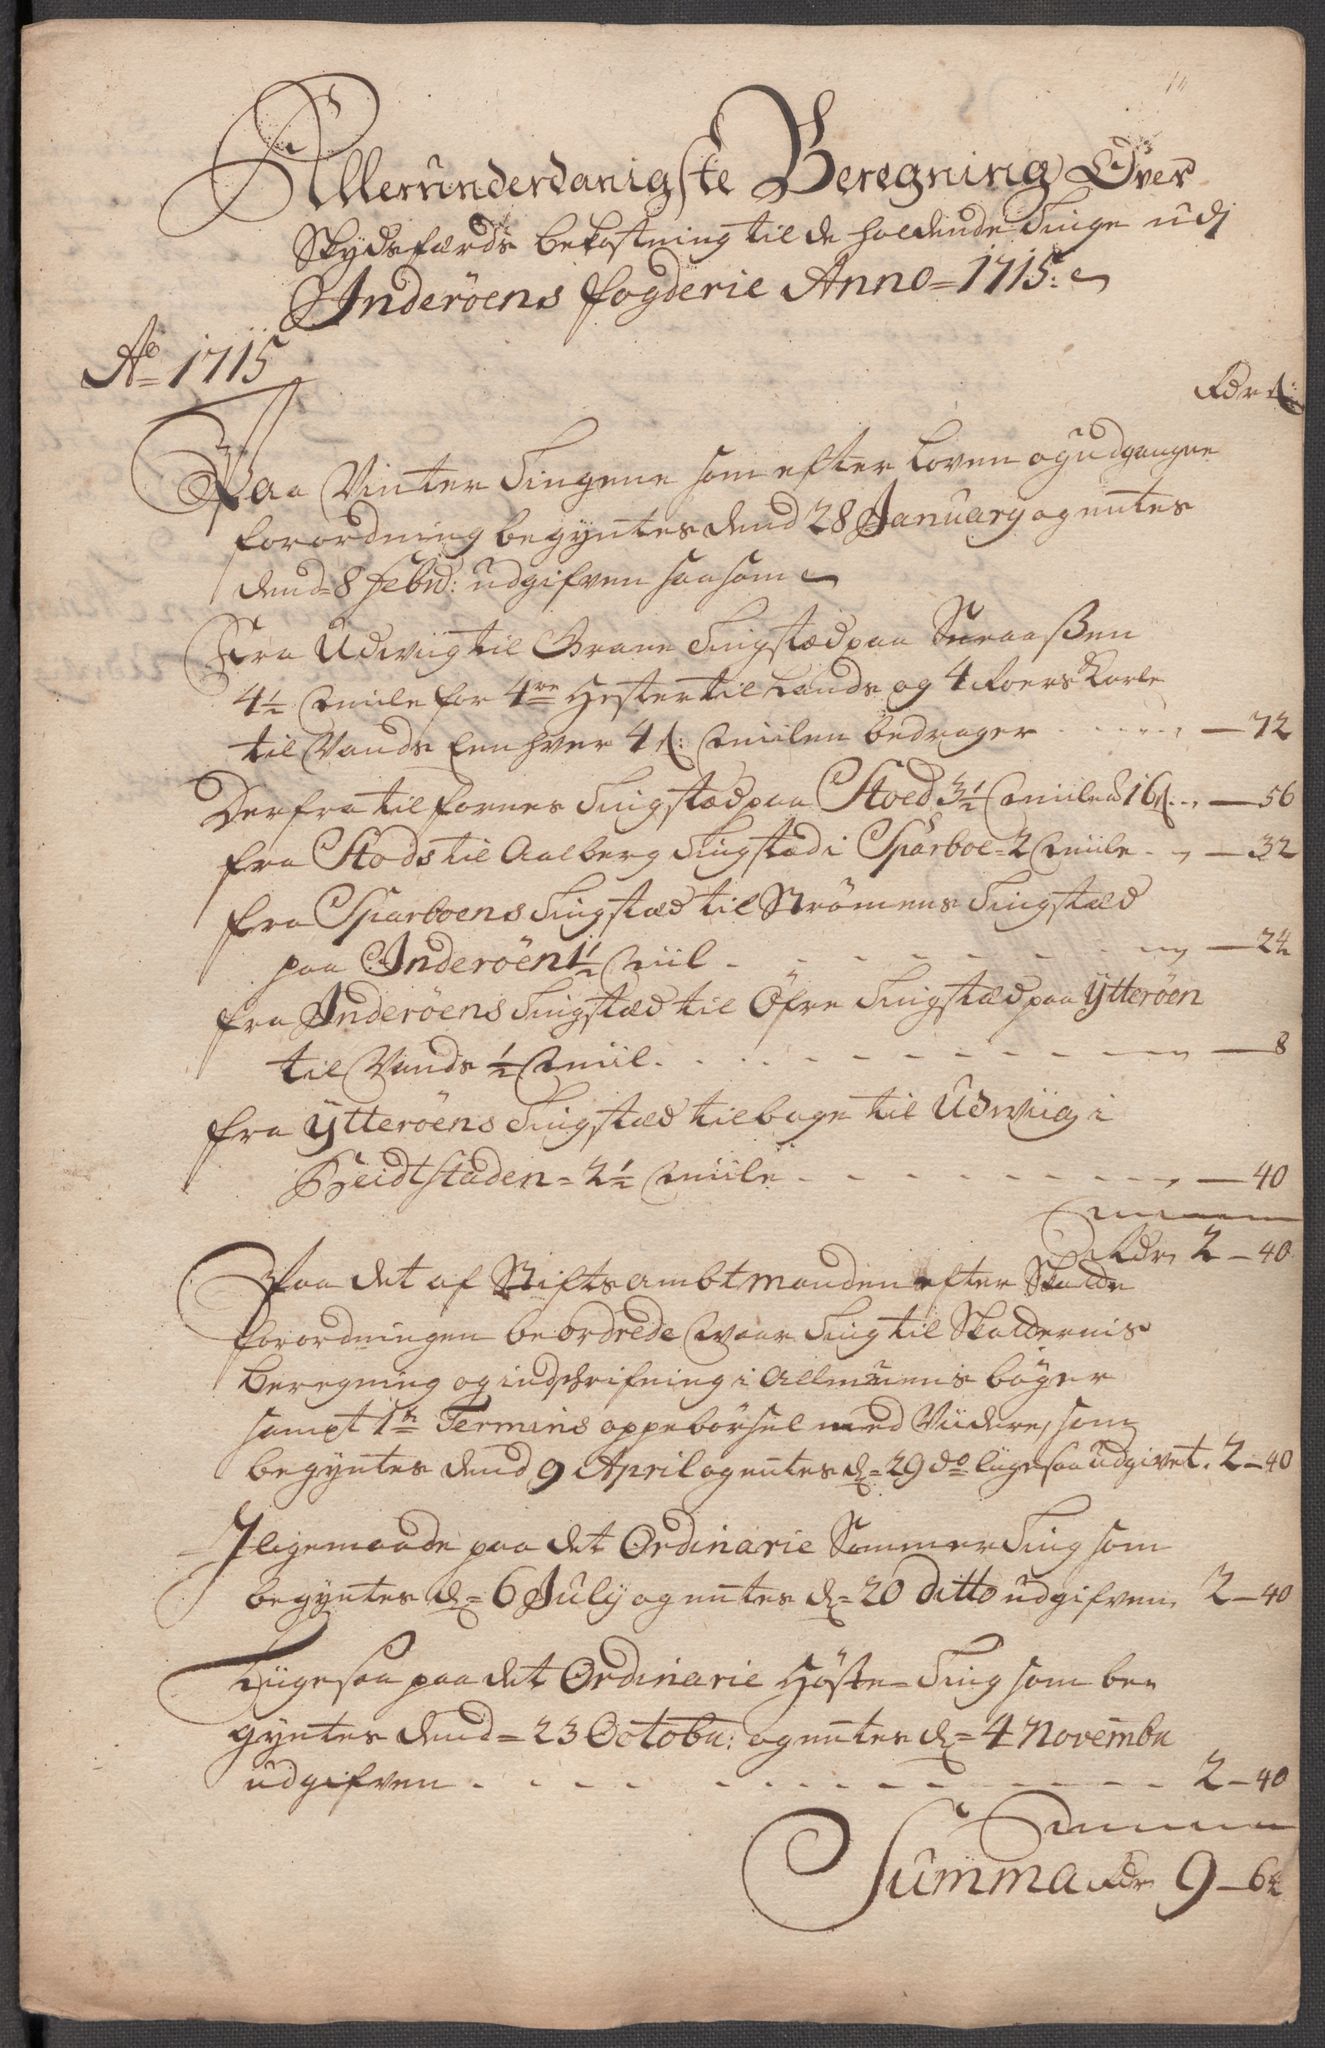 Allerunderdanigste Beregning Over
Skydsfærds bekostning til de holdende Tinge udj
Inderöens fogderie Anno = 1715:
Ao 1715
Rdr ß:
Paa Vinter Tingene som efter Loven og udgangne
forordning begyntes dend 28 January og entes
dend = 8 Febr: udgifven saasom
Fra Udviig til Grane Tingstæd paa Snaaßen
4½ Miile for 4re Hester til Lands og 4 Roers Karle
til Vands Een hver 4 ß: Miilen bedrager — 72
Der fra til fornes Tingstæd paa Stoed 3½ Miile a 16 ß — 56
fra Stods til Aalberg Tingstæd i Sparboe = 2 Miile — 32
fra Sparboens Tingstæd til Strömens Tingstæd
paa Inderöen 1½ Miil — 24
fra Inderöens Tingstæd til Öfre Tingstæd paa Ytteröen
til Vands ½ Miil — 8
fra Ytteröens Tingstæd tilbage til Udviig i
Beidtstaden = 2½ Miile — 40
Rdr 2 — 40
Paa det af Stiftsambtmanden efter Skatte
forordningen beordrede Vaar Ting til Skatternis
beregning og indschrifning i Allmuens böger
sampt 1te Termins oppebörsel med Viidere, som
begyntes dend 9 April og entes d = 29 do liigesaa udgivet. 2 — 40
Iligemaade paa det Ordinarie Sommer Ting som
begyntes d = 6 July og entes d = 20 ditto udgifven 2 — 40
Liigesaa paa det Ordinarie Höste = Ting som be=
gyntes dend = 23 Octobr: og entes d = 4 Novembr
udgifven 2 — 40
Summa Rdr 9 — 64